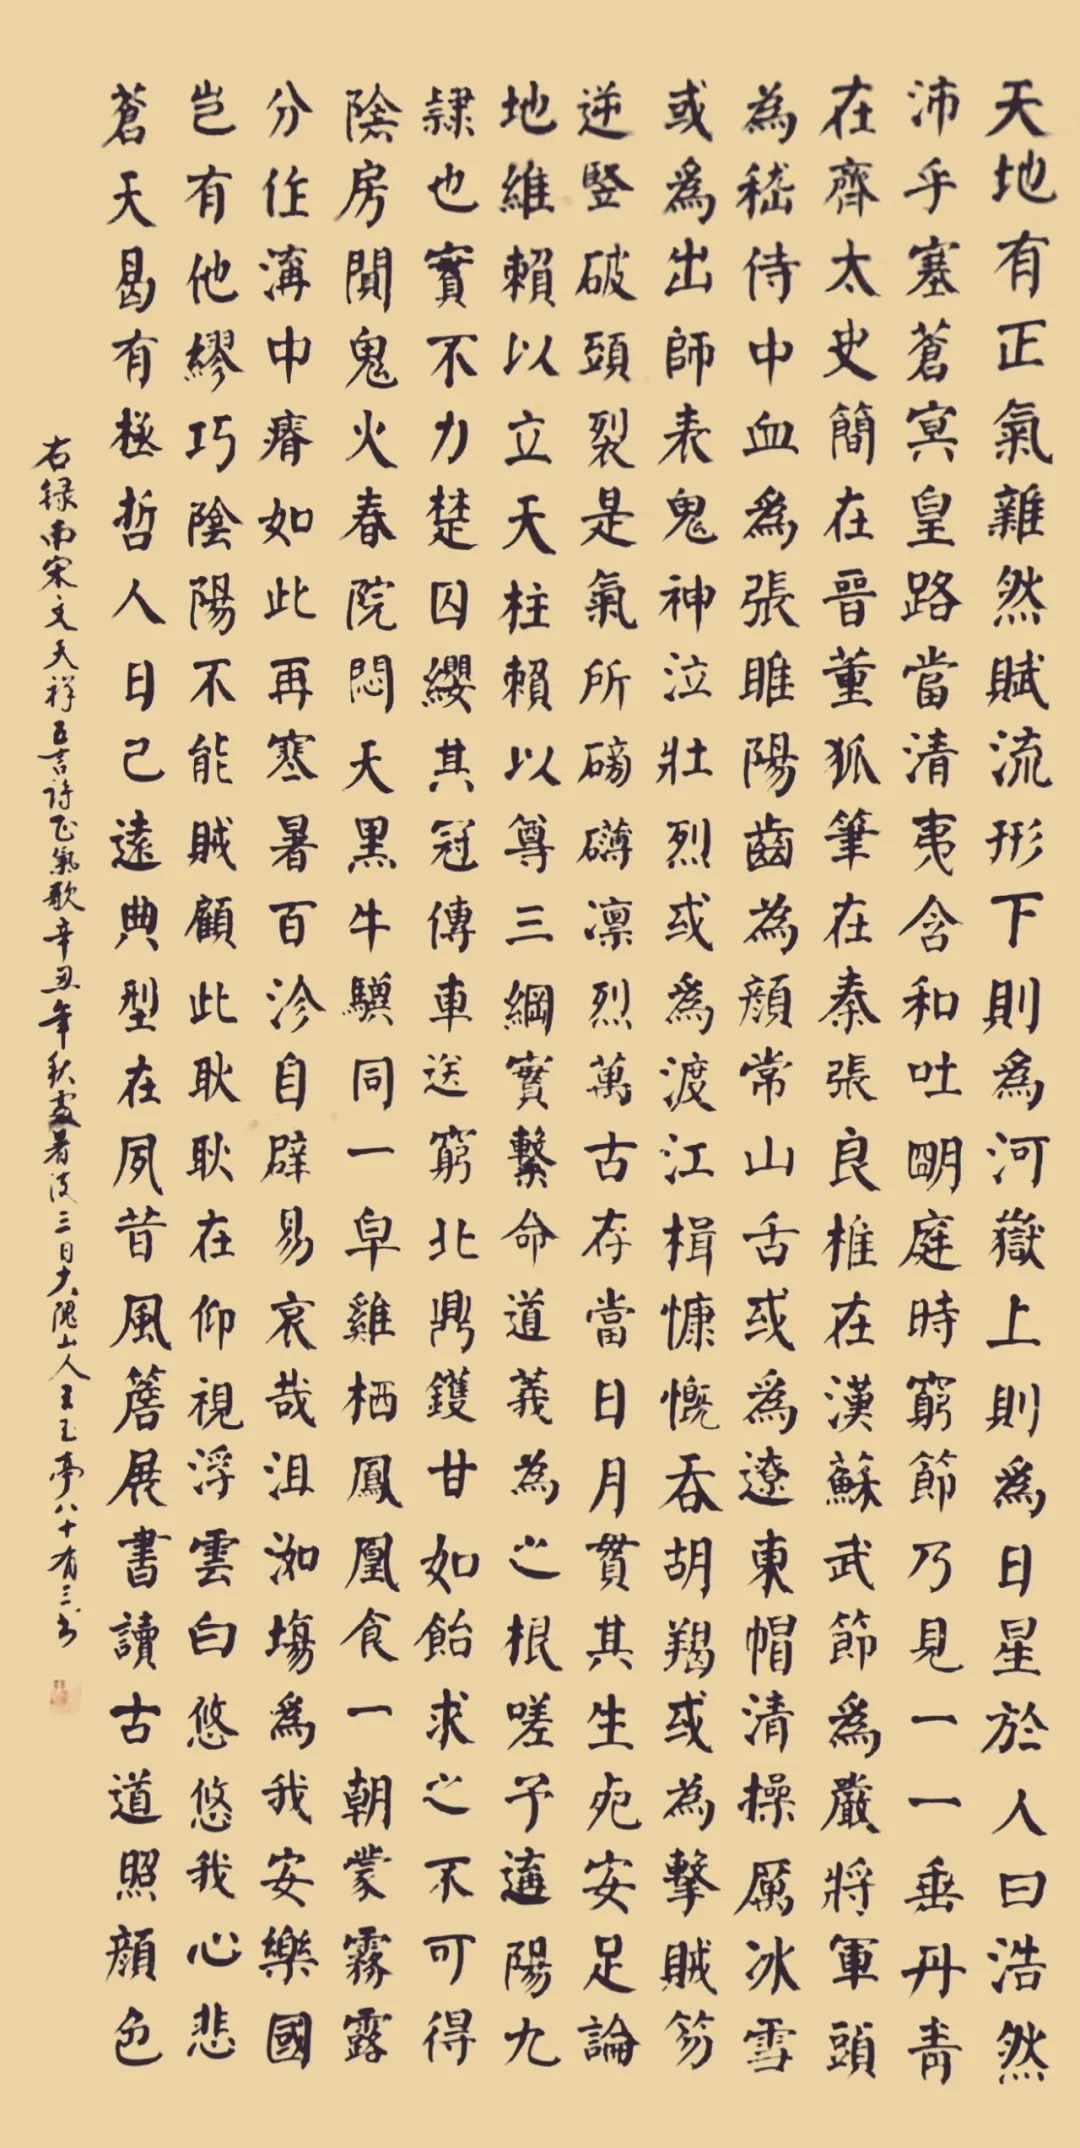 天地有正氣雜然賦流形下則為河嶽上則為日星於人曰浩然
沛乎塞蒼冥皇路當清夷含和吐明庭時窮節乃見一一垂丹青
在齊太史簡在晉董狐筆在秦張良椎在漢蘇武節為嚴將軍頭
為嵇侍中血為張睢陽齒為顏常山舌或為遼東帽清操厲冰雪
或為出師表鬼神泣壯烈或為渡江楫慷慨吞胡羯或為擊賊笏
逆豎破頭裂是氣所磅礴凛烈萬古存當日月貫其生死安足論
地維賴以立天柱賴以尊三綱實繫命道義為之根嗟予遘陽九
隸也實不力楚囚纓其冠傳車送窮北鼎鑊甘如飴求之不可得
陰房闃鬼火春院悶天黑牛驥同一皁雞栖鳳凰食一朝蒙霧露
分作溝中瘠如此再寒暑百沴自辟易哀哉沮洳場為我安樂國
岂有他繆巧陰陽不能賊顧此耿耿在仰視浮雲白悠悠我心悲
蒼天曷有極哲人日已遠典型在夙昔風簷展書讀古道照顏色
右録南宋文天祥五言詩正氣歌辛丑年秋處暑后三日大隗山人王玉亭八十有三书